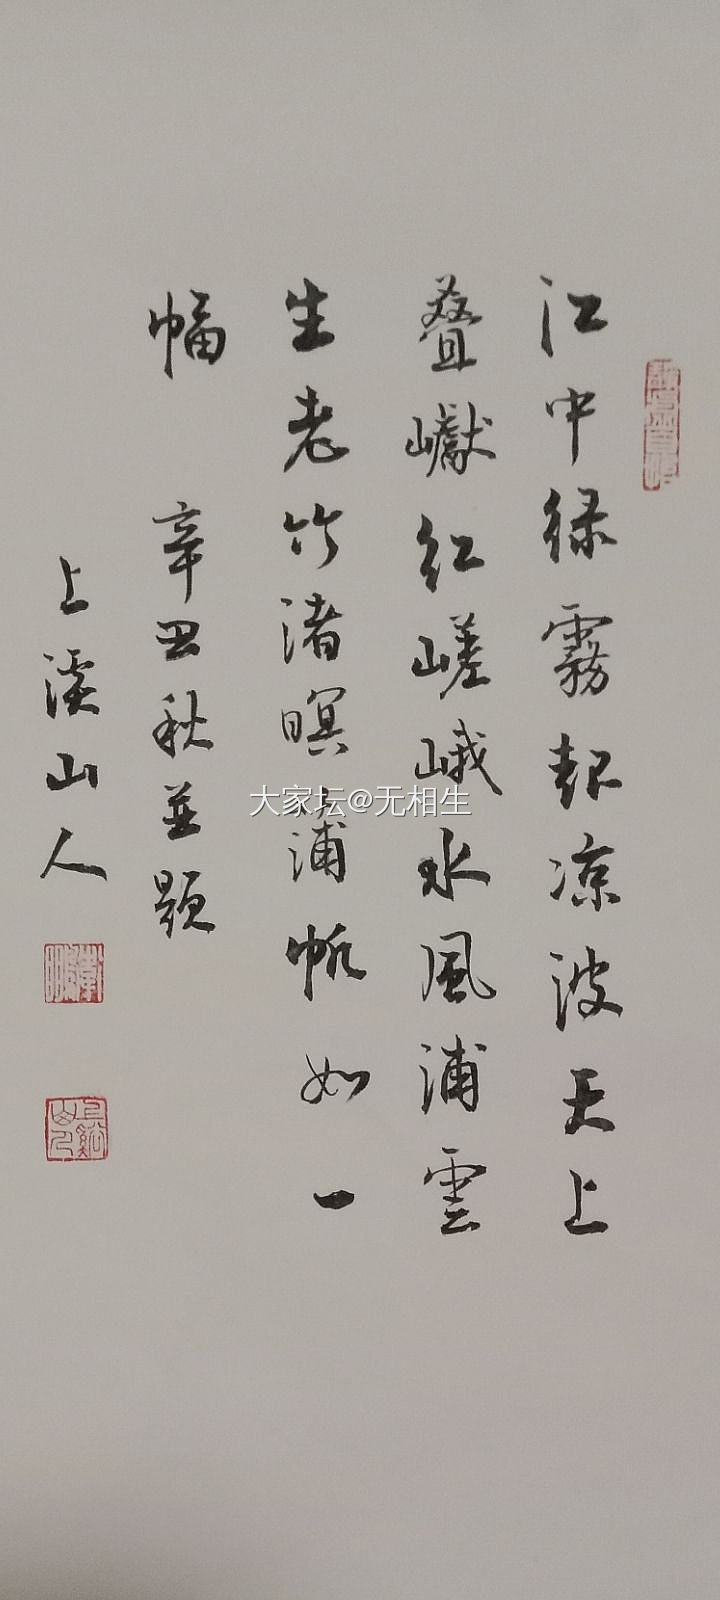 江中绿霧起凉波天上
叠巘红嵯峨水風浦雲
生老竹渚暝蒲帆如一
幅 辛丑秋並題
上溪山人
大家坛@无相生